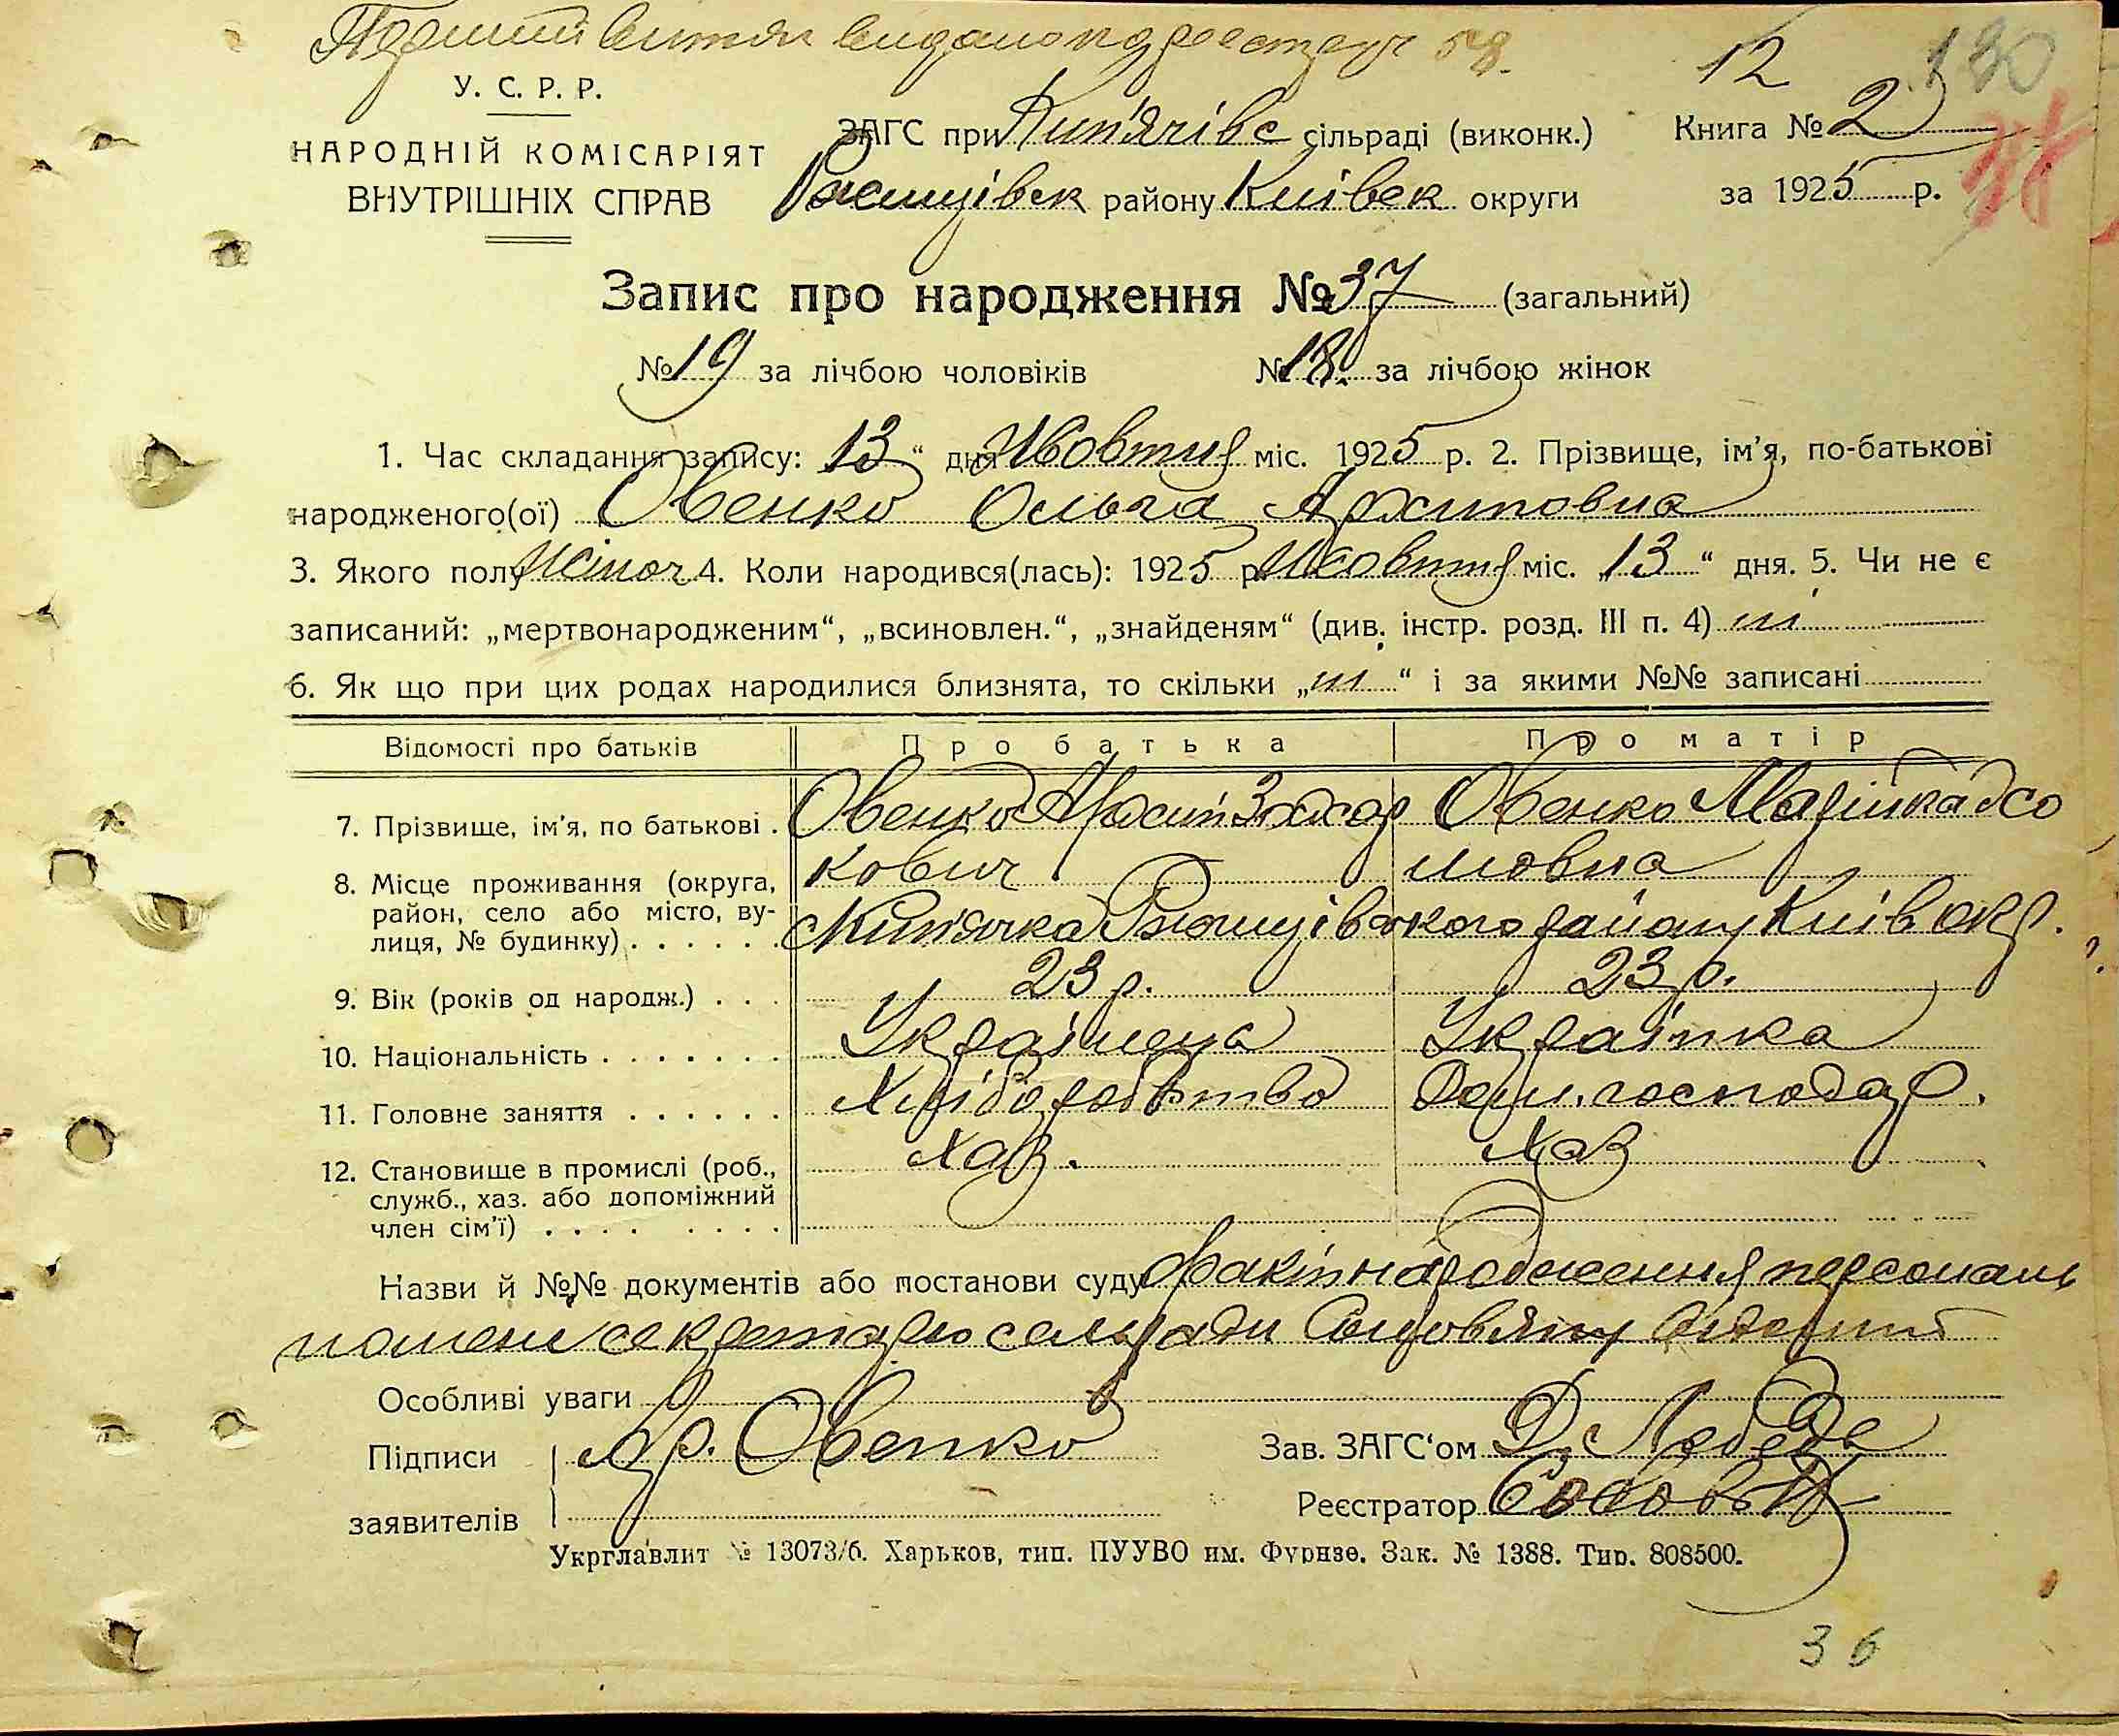 Перший витяг видано під реєстром 58.
12 130
У. С. Р. Р.
НАРОДНІЙ КОМІСАРІЯТ
ВНУТРІШНІХ СПРАВ
ЗАГС при Кип'ячівс сільраді (виконк.) Книга № 2
Ржищівськ району Київськ округи за 1925 р.
Запис про народження № 37 (загальний)
№ 19 за лічбою чоловіків № 18. за лічбою жінок
1. Час складання запису: 13 “ дня Жовтня міс. 1925 р. 2. Прізвище, ім'я, по-батькові
народженого(ої) Овенко Ольга Архиповна
3. Якого полу Жіноч 4. Коли народився(лась): 1925 р. Жовтня міс. „13“ дня. 5. Чи не є
записаний: „мертвонародженим“, „всиновлен.“, „знайденям“ (див. інстр. розд. III п. 4) ні
6. Як що при цих родах народилися близнята, то скільки „ні“ і за якими №№ записані
Відомості про батьків Про батька Про матір
7. Прізвище, ім'я, по батькові . Овенко Архип Захар Овенко Марійка
кович мовна
8. Місце проживання (округа,
район, село або місто, ву-
лиця, № будинку) . . . . . . с Кип'ячка Ржищівського району Київ окр.
9. Вік (років од народж.) . . . 23 р. 23 р.
10. Національність . . . . . . . Українець Українка
11. Головне заняття . . . . . . Хліборобство Дом. господар.
12. Становище в промислі (роб.,
служб., хаз. або допоміжний
член сім'ї) . . . . . . . . Хаз. Хаз
Назви й №№ документів або постанови суду Факт народження персональ
но секретарю сельради
Особливі уваги
Підписи Ар. Овенко Зав. ЗАГС‘ом Д. Лебедь
заявителів Реєстратор
Укрглавлит № 13073/б. Харьков, тип. ПУУВО им. Фрунзе. Зак. № 1388. Тир. 808500.
36